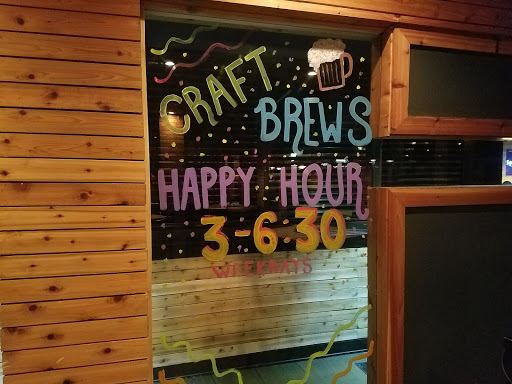 CRAFT
BREWS
HAPPY HOUR
3-6:30
WEEKDAYS